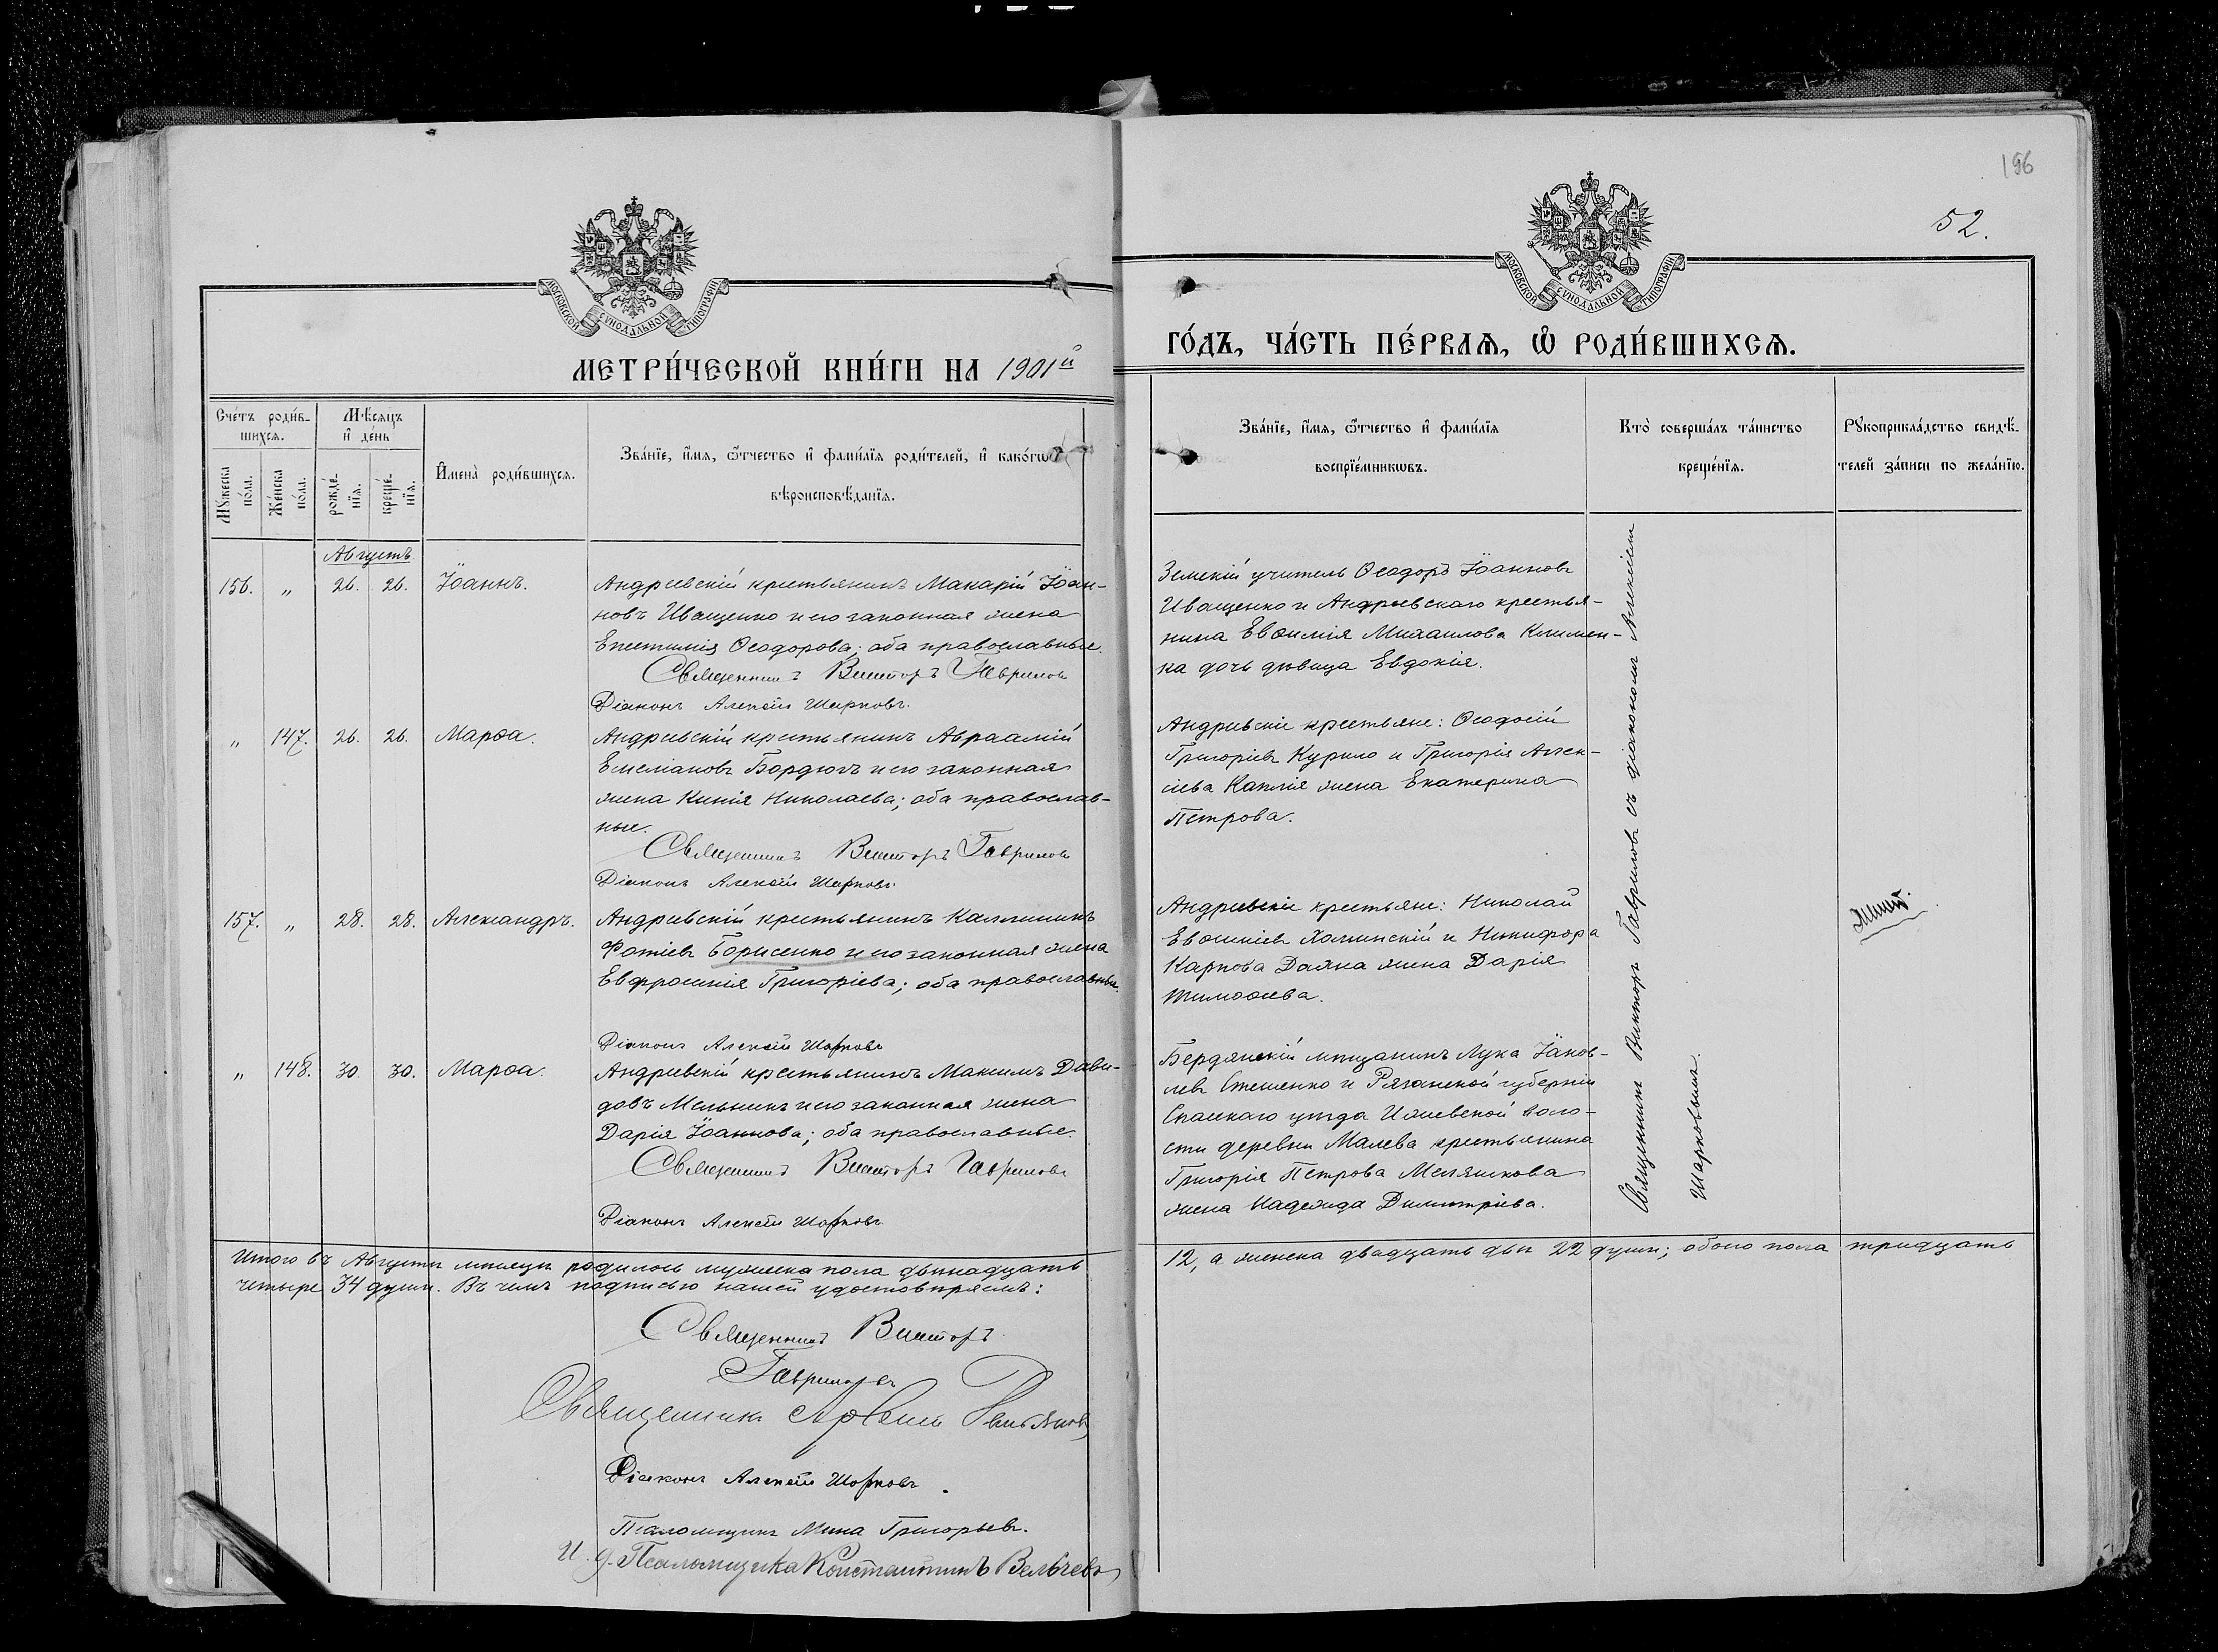 196
52.
МОСКОВСКОЙ СУНОДАЛЬНОЙ ТИПОГРАФІИ
МОСКОВСКОЙ СУНОДАЛЬНОЙ ТИПОГРАФІИ
МЕТРИ́ЧЕСКОЙ КНИ́ГИ НА 1901й
ГО́ДЪ, ЧА́СТЬ ПЕ́РВАѦ, Ѡ҆ РОДИ́ВШИХСѦ.
Сче́тъ роди́в-
шихсѧ.
Мꙋжеска по́ла.
Же́нска по́ла.
Мѣ́сѧцъ
и҆ де́нь
рожде́-
нїѧ.
креще́-
нїѧ.
И҆мена̀ роди́вшихсѧ.
Зва́нїе, и҆́мѧ, ѻ҆́тчество и҆ фами́лїѧ роди́телей, и҆ како́гѡ
вѣроисповѣ́данїѧ.
Зва́нїе, и҆́мѧ, ѻ҆́тчество и҆ фами́лїѧ
воспрїе́мникѡвъ.
Кто̀ соверша́лъ та́инство
креще́нїѧ.
Рꙋкоприкла́дство свидѣ́-
телей за́писи по жела́нїю.
Августъ
156. „ 26. 26. Іоаннъ.
Андреевскій крестьянинъ Макарій Іоан-
новъ Иващенко и его законная жена
Епистимія Ѳеодорова; оба православные.
Священникъ Викторъ Гавриловъ
Діаконъ Алексій Шарковъ.
Земскій учитель Ѳеодоръ Іоанновъ
Иващенко и Андреевскаго крестья-
нина Евѳимія Михаилова Климен-
ка дочь дѣвица Евдокія.
„ 147. 26. 26. Марѳа.
Андреевскій крестьянинъ Авраамій
Емеліановъ Бордюгъ и его законная
жена Николаева; оба православ-
ные.
Священникъ Викторъ Гавриловъ
Діаконъ Алексій Шарковъ.
Андреевскіе крестьяне: Ѳеодосій
Григоріевъ Курило и Григорія Алек-
сіева Каплія жена Екатерина
Петрова.
157. „ 28. 28. Александръ.
Андреевскій крестьянинъ Каллиникъ
Фотіевъ Борисенко и его законная жена
Евфросинія Григоріева; оба православные.
Діаконъ Алексій Шарковъ
Андреевскіе крестьяне: Николай
Евѳиміевъ и Никифора
Карпова жена Дарія
Тимоѳеева.
„ 148. 30. 30. Марѳа.
Андреевскій крестьянинъ Максимъ Дави-
довъ Мельникъ и его законная жена
Дарія Іоаннова; оба православные.
Священникъ Викторъ Гавриловъ
Діаконъ Алексій Шарковъ.
Бердянскій мѣщанинъ Лука Іаков-
левъ Стешенко и Рязанской губерніи
Спасскаго уѣзда Ижевской воло-
сти деревни Малева крестьянина
Григорія Петрова
жена Надежда Димитріева.
Священникъ Викторъ Гавриловъ съ діакономъ Алексіемъ
Шарковымъ.
Итого въ Августѣ мѣсяцѣ родилось мужеска пола двѣнадцать
12, а женска двадцать двѣ 22 души; обоего пола тридцать
четыре 34 души. Въ чемъ подписью нашей удостовѣряемъ:
Священникъ Викторъ
Гавриловъ
Священникъ
Діаконъ Алексій Шарковъ.
Псаломщикъ Мина Григорьевъ.
И. д. Псаломщика Константинъ Вельчевъ